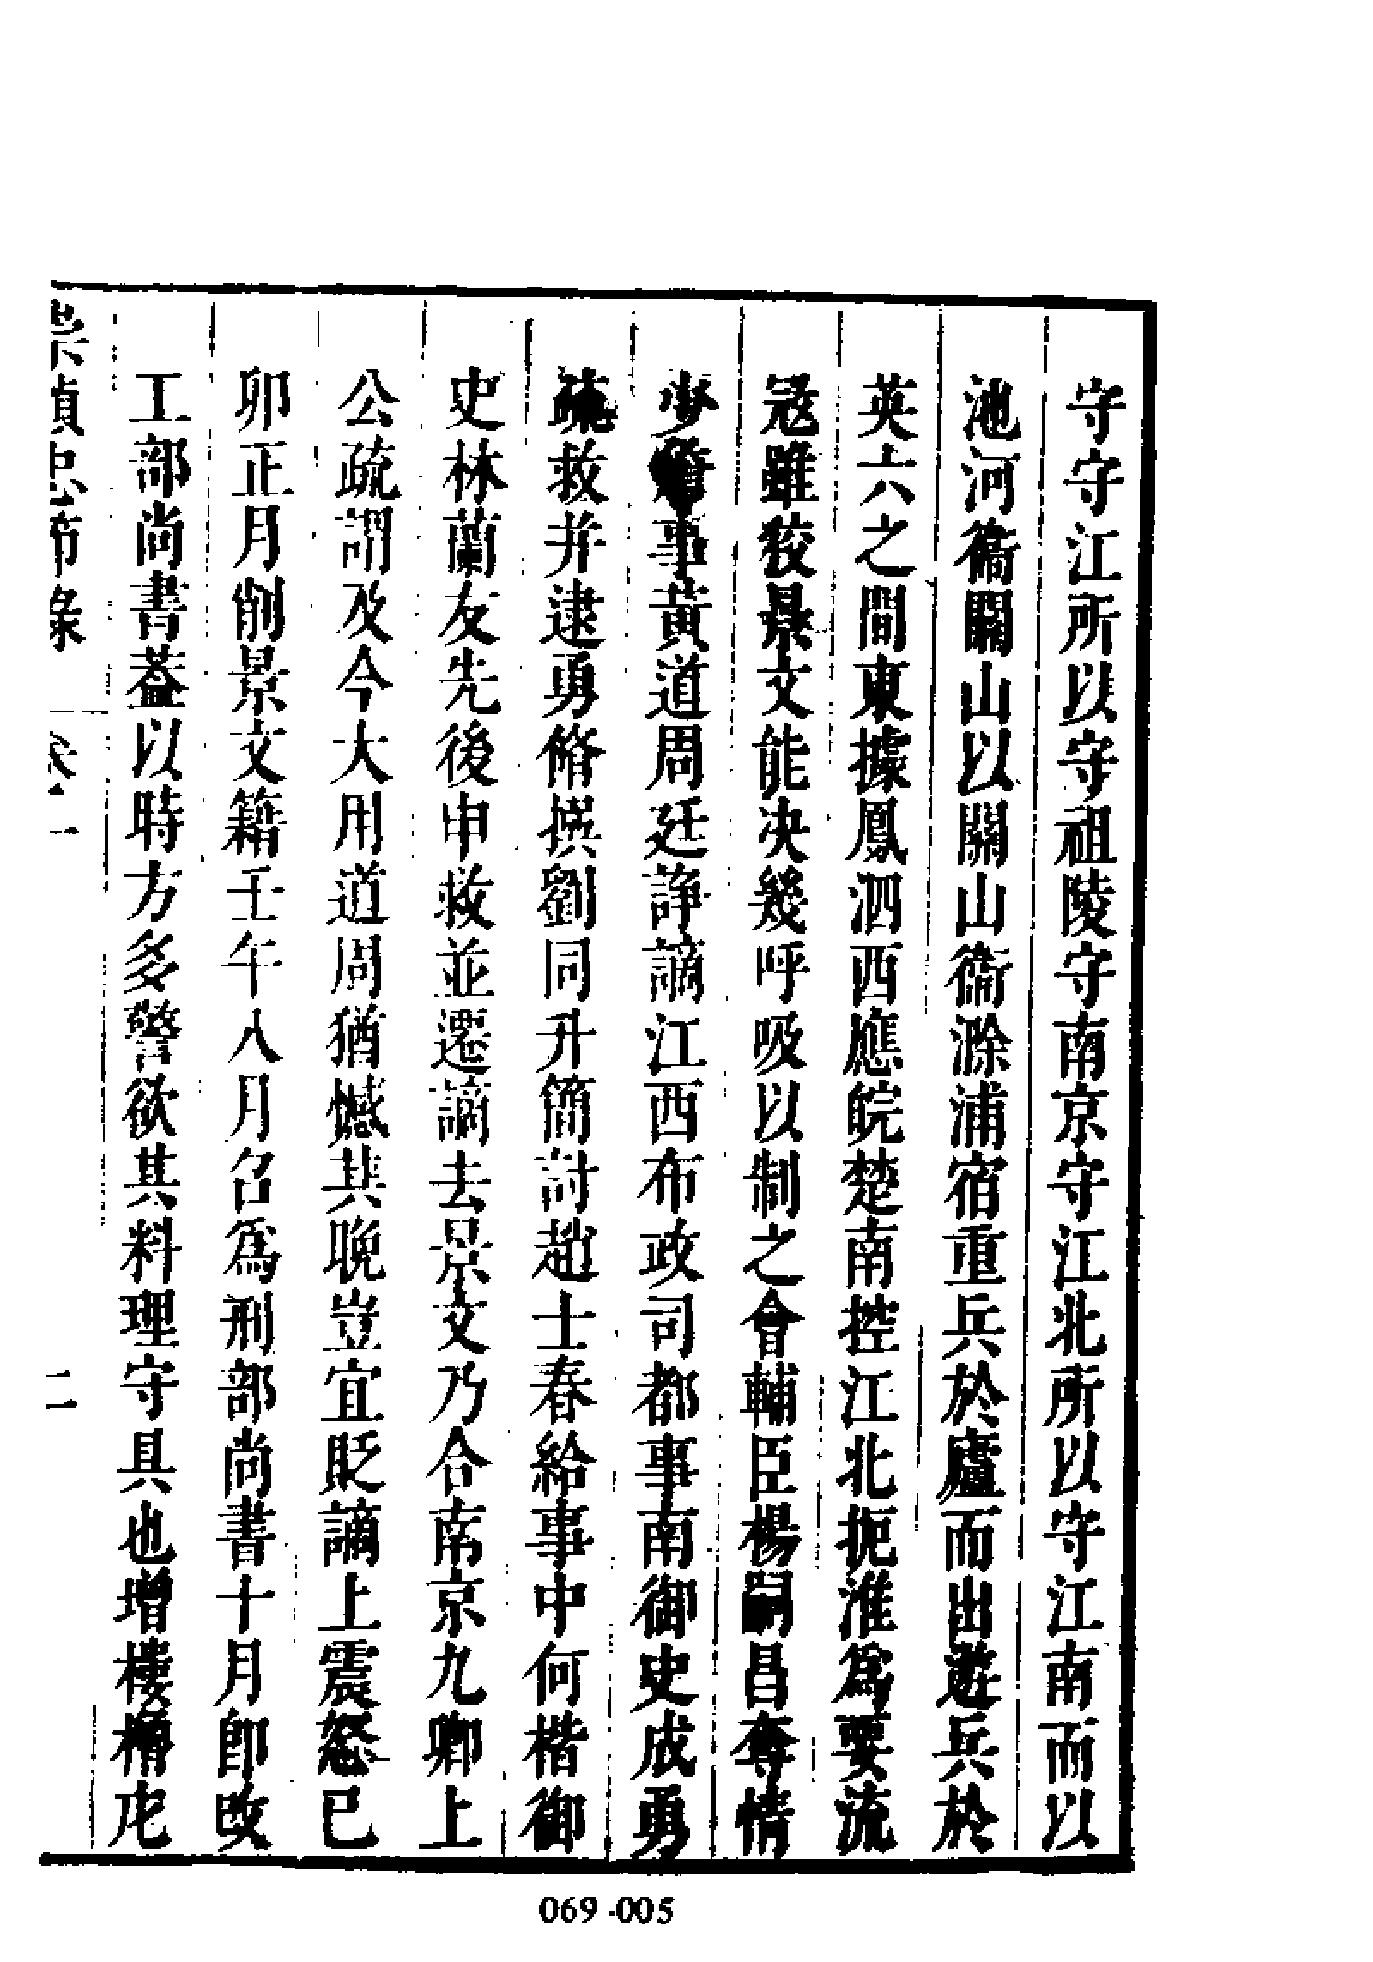 守守江所以守祖陵守南京守江北所以守江南而以
池河衞關山以關山衞滁浦宿重兵於廬而出遊兵於
英六之間東據鳳泗西應皖楚南控江北扼淮爲要流
冦雖狡景文能决幾呼吸以制之會輔臣楊嗣昌奪情
少詹事黃道周廷諍謫江西布政司都事南御史成勇
疏救并逮勇脩撰劉同升簡討趙士春給事中何楷御
史林蘭友先後申救並遷謫去景文乃合南京九卿上
公疏謂及今大用道周猶憾其晚豈宜貶謫上震怒已
卯正月削景文籍壬午八月召爲刑部尚書十月即改
工部尚書葢以時方多警欲其料理守具也增樓櫓庀
崇禎忠節錄 卷一 二
069-005